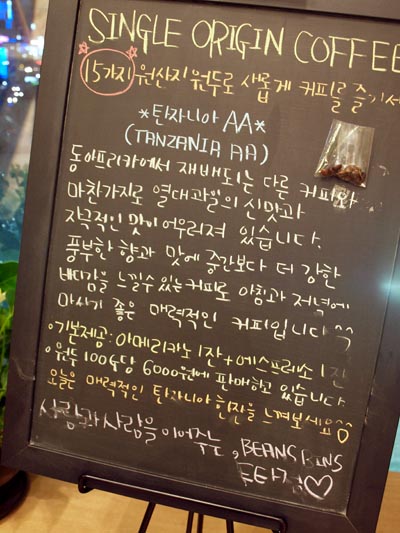 SINGLE ORIGIN COFFEE
15가지 원산지 원두로 새롭게 커피를 즐기세
*탄자니아 AA*
(TANZANIA AA)
동아프리카에서 재배되는 다른 커피와
마찬가지로 열대과일의 신맛과
자극적인 맛이 어우러져 있습니다.
풍부한 향과 맛에 중간보다 더 강한
바디감을 느낄수 있는 커피로 아침과 저녁에
마시기 좋은 매력적인 커피입니다^^
•기본제공: 아메리카노 1잔 + 에스프레소 1잔
•원두 100g당 6000원에 판매하고 있습니다
오늘은 매력적인 탄자니아 한잔을 느껴보세요
사람과 사람을 이어주는, BEANS BINS